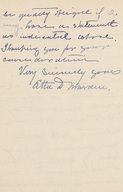 be greatly obliged if I
may have a statement
as indicated above.
Thanking you for your
consideration
Very Sincerely yours
Etta D. Warren